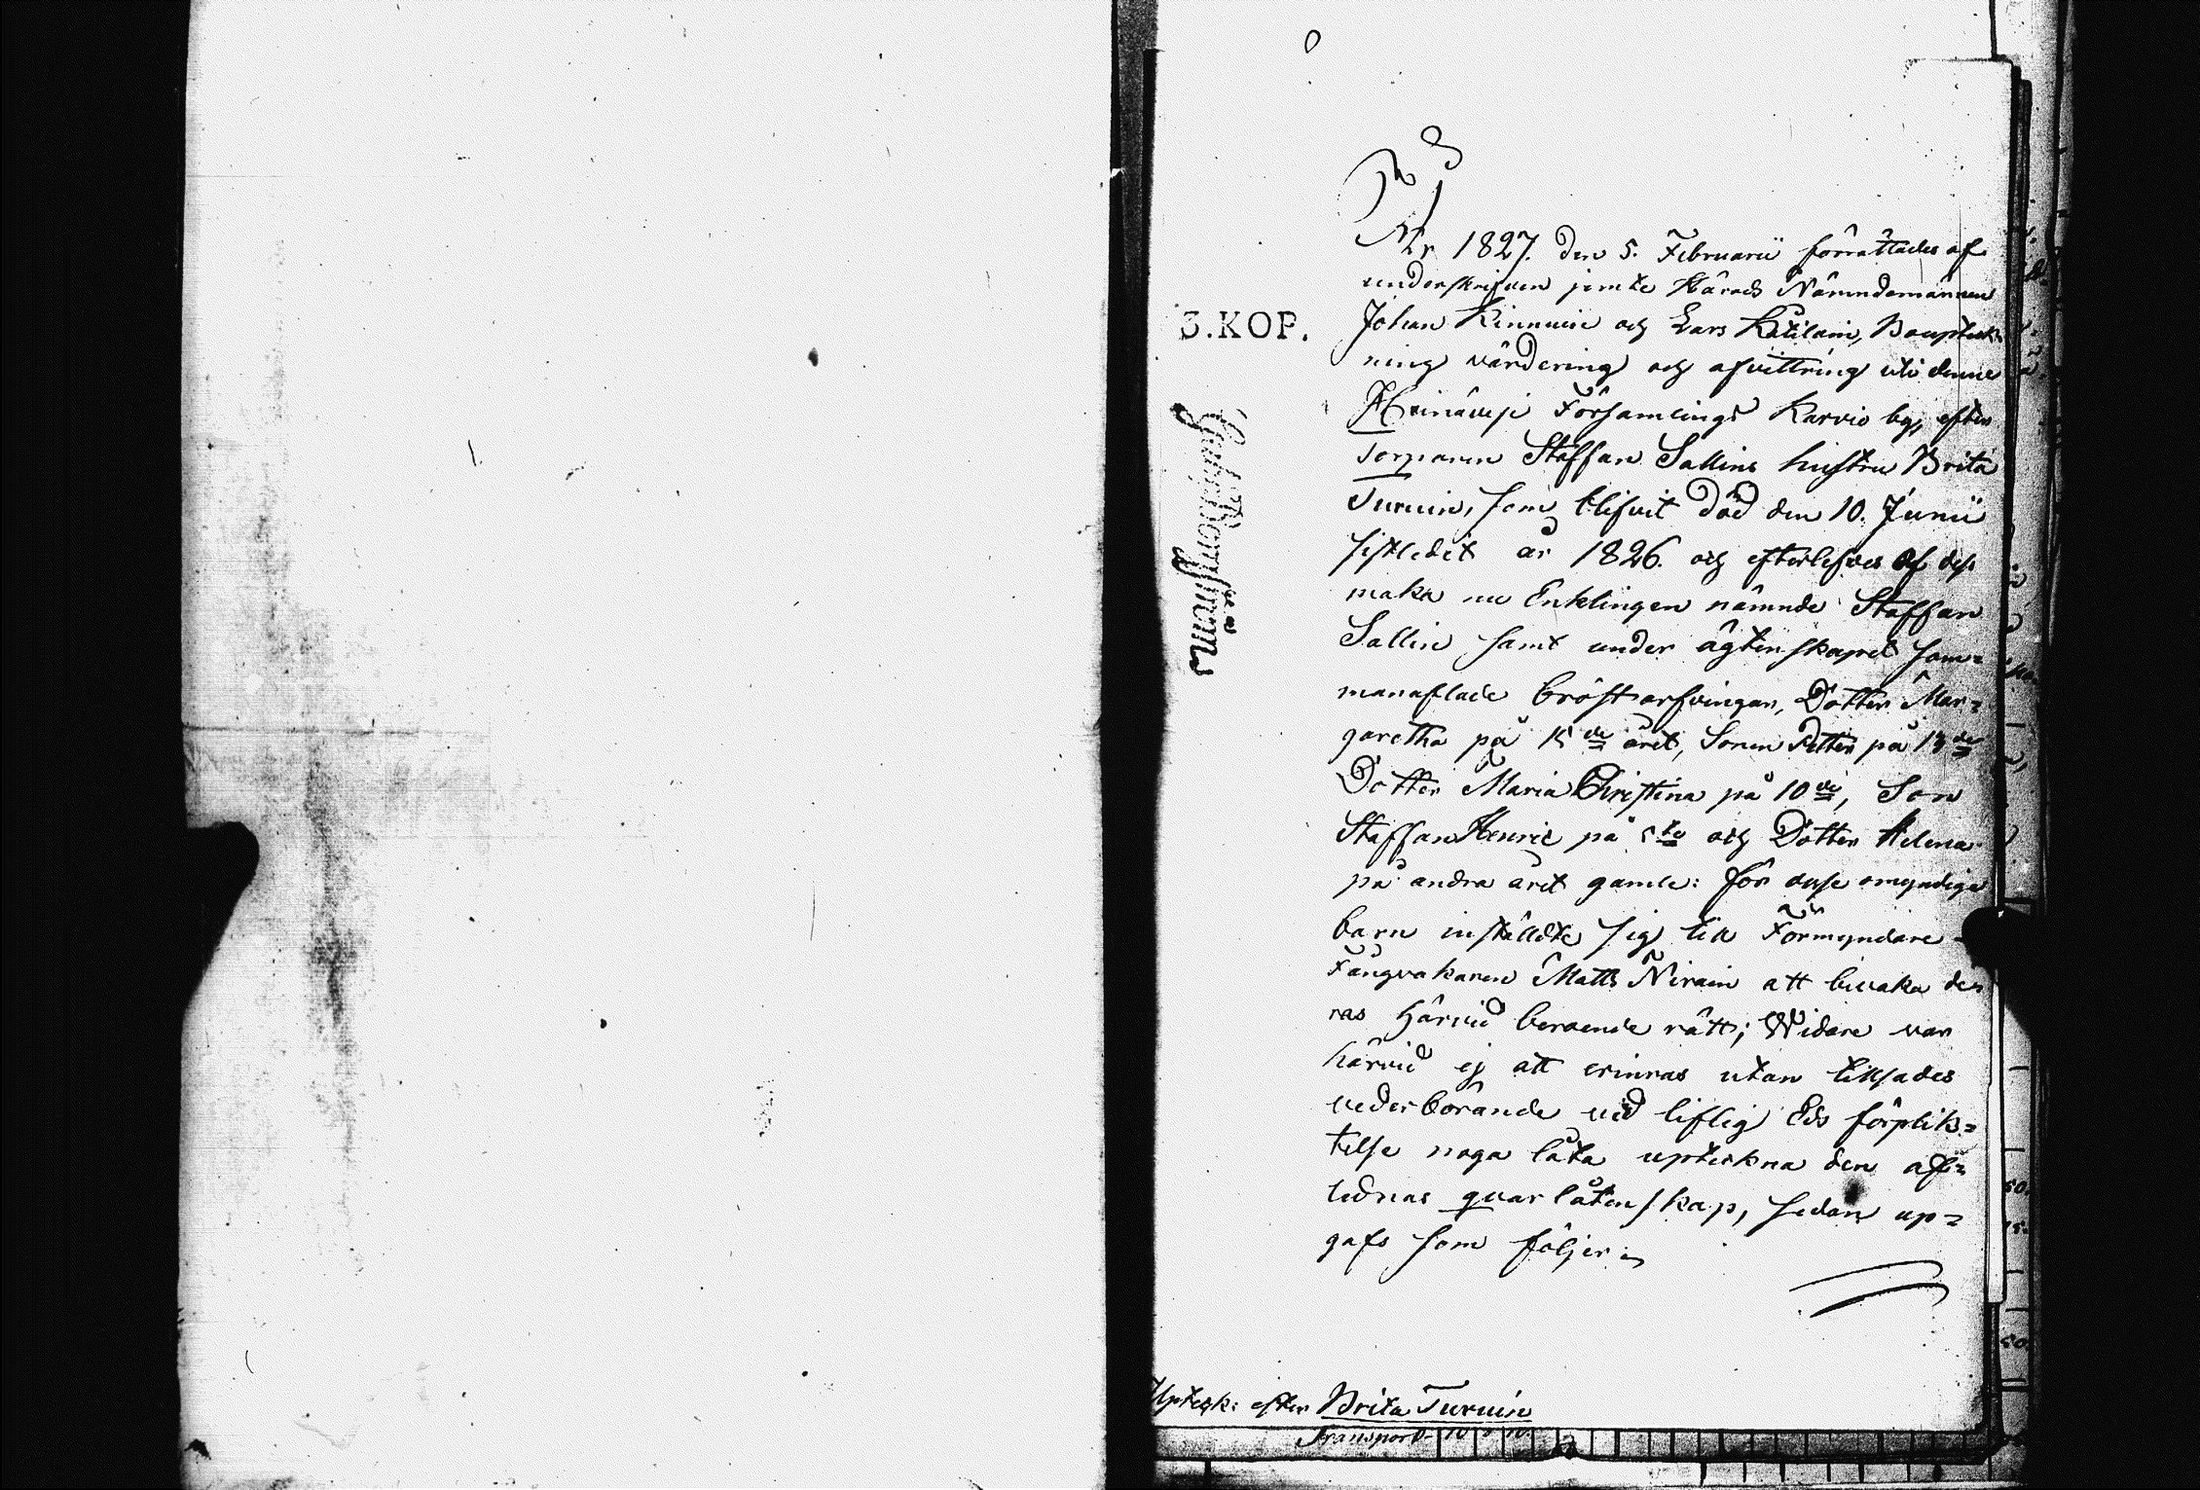 År 1827. den 5. Februarii förrättades af
underskrifven jemte Härads Nämndemännen
Johan Kinnuin och Lars Kätilain, Bouptek-
ning värdering och afvittring uti denne
Heinävesi Församlings Karvio by, efter
Torparen Staffan Sallins hustru Brita
Turuin, som blifvit död den 10. Junii
sistledit år 1826. och efterlefves af dess
maka nu Enklingen nämnde Staffan
Sallin samt under ägtenskapet sam=
manaflade bröstarfvingar, Dotter Mar=
garetha på 15de året, Sonen Petter på 13de
Dotter Maria Christina på 10de, Son
Staffan Henric på 5te och Dotter Helena
på andra året gamle: för desse omyndiga
barn inställdte sig till Förmyndare
Fångvakaren Matts Nirain att bevaka de=
ras härvid beroende rätt; Widare var
härvid ej att erinras utan tillsades
vederbörande vid liflig Eds förplik=
telse noga låta upteckna den afl=
lednas quarlåtenskap, sedan up=
gafs som följer
3.KOP.
Upteck: efter Brita Turuin
Transport